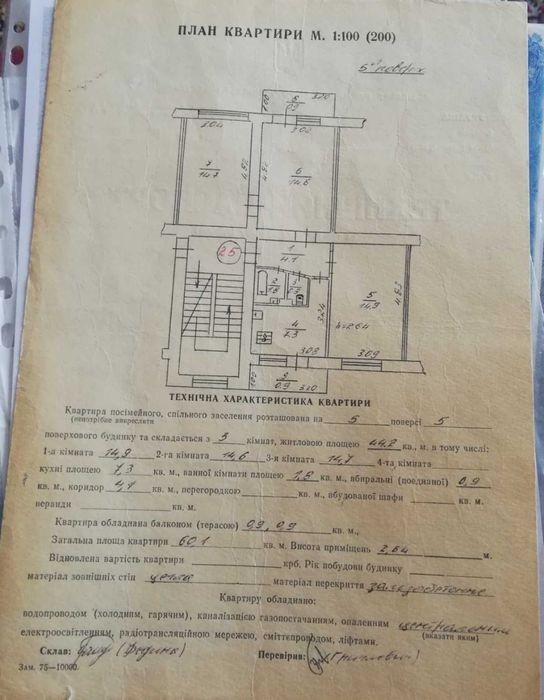 ПЛАН КВАРТИРИ М. 1:100 (200)
5ий поверх
8
0,9
1.00
3.20
3.04
3.02
7
14.7
4.82
4.82
6
14.6
25
1
4.1
2
1.8
4
7.3
3.24
5
14.9
4.83
h=2.64
3.03
3.09
9
0.9
3.20
ТЕХНІЧНА ХАРАКТЕРИСТИКА КВАРТИРИ
Квартира посімейного, спільного заселення розташована на 5 поверсі 5
(непотрібне викреслити
поверхового будинку та складається з 3 кімнат, житловою площею 44,2 кв., м. в тому числі:
1-а кімната 14,9 2-га кімната 14,6 3-я кімната 14,7 4-та кімната
кухні площею 7,3 кв. м., ванної кімнати площею 1,8 кв. м., вбиральні (поєднаної) 0,9
кв. м., коридор 4,1 кв. м., перегородкою кв. м., вбудованої шафи кв. м.
веранди кв. м.
Квартира обладнана балконом (терасою) 0,9, 0,9 кв. м.,
Загальна площа квартири 60,1 кв. м. Висота приміщень 2,64 м.
Відновлена вартість квартири крб. Рік побудови будинку
матеріал зовнішніх стін цегла матеріал перекриття залізобетонне
Квартиру обладнано:
водопроводом (холодним, гарячим), каналізацією газопостачанням, опаленням центральним
(вказати яким)
електроосвітленням, радіотрансляційною мережею, сміттєпроводом, ліфтами.
Склав: Перевірив:
Зам. 75—10000.